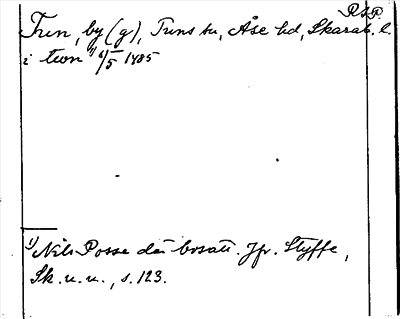 R.S.P.
Tren, by (g), Tuns sn, Åse hd, Skarab. l.
i twn ¹⁾ 6/5 1485
1) Nils Posse där bosatt. Jfr. Styffe,
Sk. u. u., s. 123.